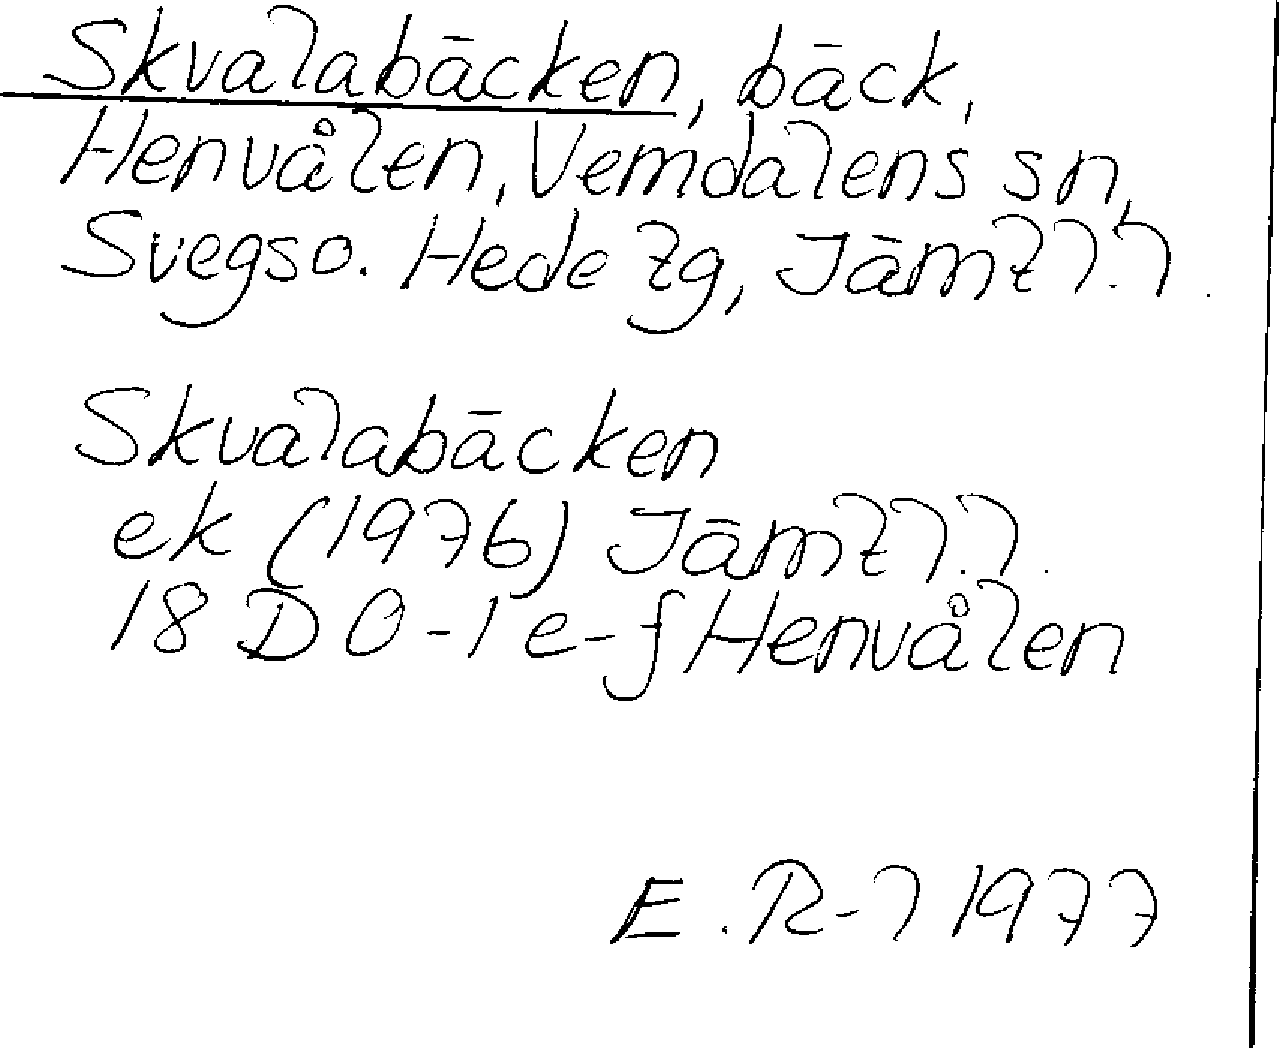 Skvalabäcken, bäck,
Henvålen, Vemdalens sn,
Svegs o. Hede tg, Jämtl.l.
Skvalabäcken
ek (1976) Jämtl.l.
18 D 0-1 e-f Henvålen
E. R-l 1977